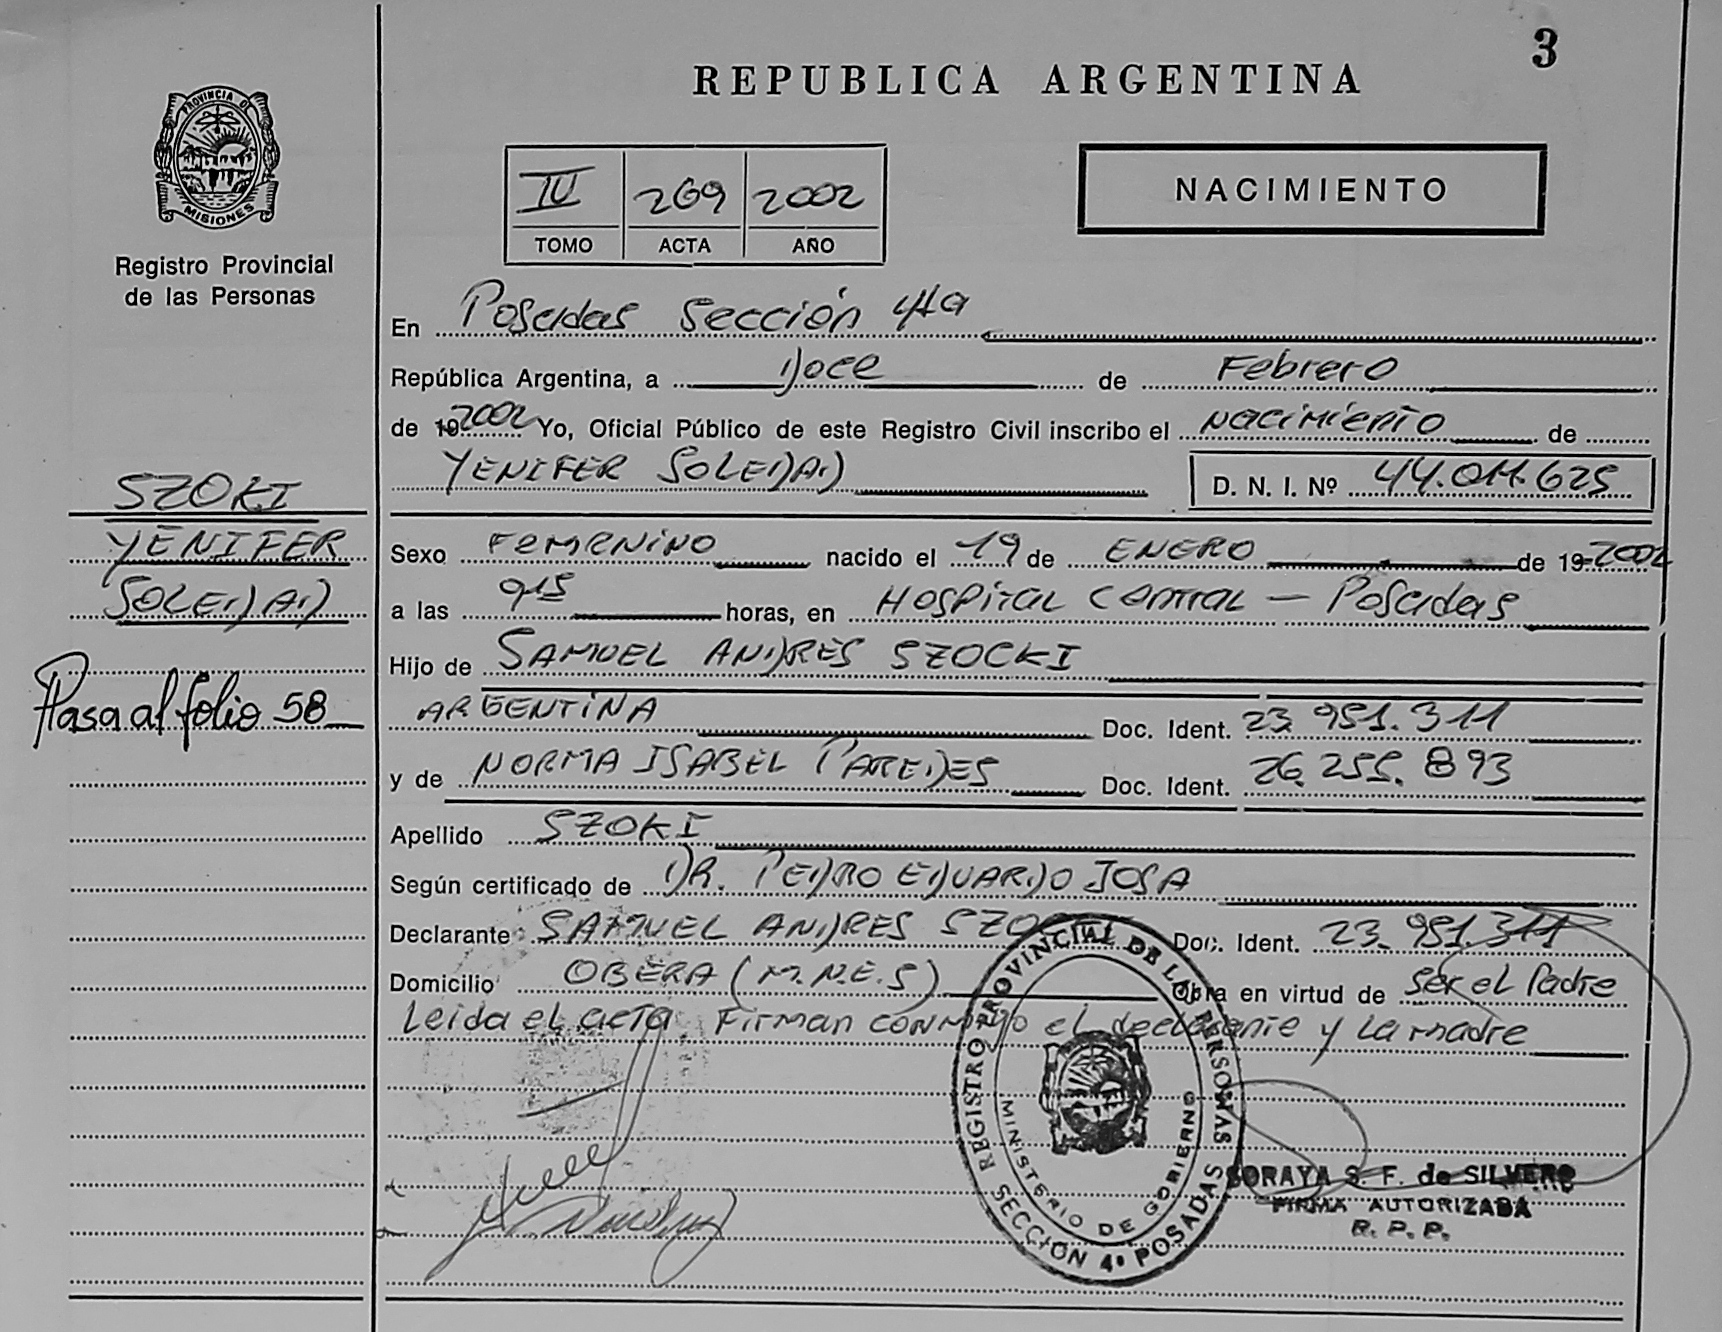 3
REPUBLICA ARGENTINA
PROVINCIA DE
MISIONES
Registro Provincial
de las Personas
IV 269 2002
TOMO ACTA AÑO
NACIMIENTO
En Posadas Sección 4ta
República Argentina, a Doce de Febrero
de 19 2002 Yo, Oficial Público de este Registro Civil inscribo el nacimiento de
YENIFER SOLEDAD D. N. I. Nº 44.011.625
SZOKI
YENIFER
SOLEDAD
Pasa al folio 58
Sexo FEMENINO nacido el 19 de ENERO de 19 2002
a las 9 15 horas, en HOSPITAL CENTRAL – Posadas
Hijo de SAMUEL ANDRES SZOCKI
ARGENTINA Doc. Ident. 23.951.311
y de NORMA ISABEL PAREDES Doc. Ident. 26.255.893
Apellido SZOKI
Según certificado de DR. PEDRO EDUARDO JOSA
Declarante SAMUEL ANDRES Doc. Ident. 23.951.311
Domicilio OBERA (M.N.E.S) Obra en virtud de ser el Padre
Leida el acta Firman conmigo el declarante y La madre
REGISTRO PROVINCIAL DE LAS PERSONAS
MINISTERIO DE GOBIERNO
SECCIÓN 4ª POSADAS
SORAYA S. F. de SILVERO
FIRMA AUTORIZADA
R. P. P.